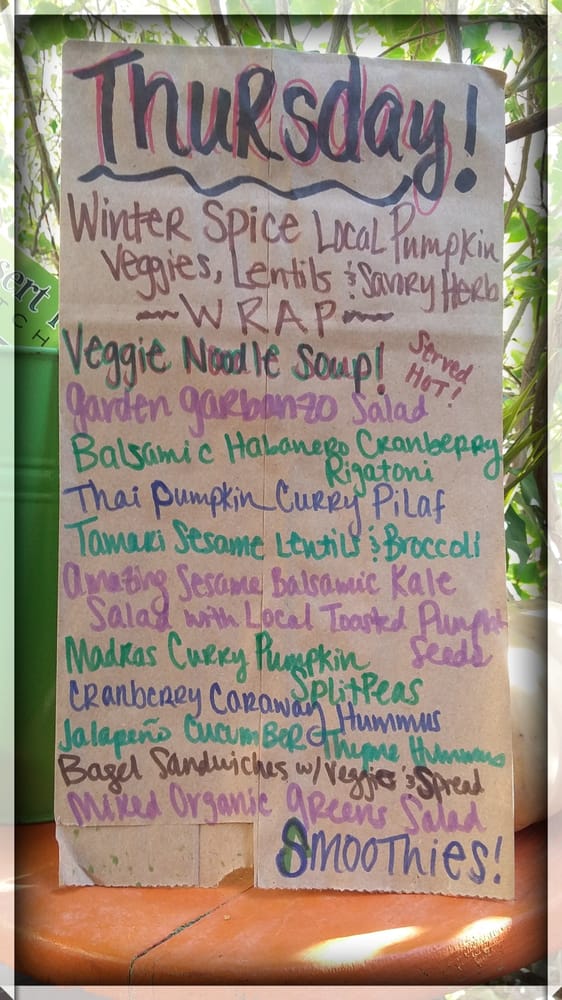 Thursday!
Winter Spice Local Pumpkin
Veggies, Lentils & Savory Herb
~WRAP~
Served
Hot!
Veggie Noodle Soup!
Garden Garbanzo Salad
Balsamic Habanero Cranberry
Rigatoni
Thai Pumpkin Curry Pilaf
Tamari Sesame Lentils & Broccoli
Amazing Sesame Balsamic Kale
Salad with Local Toasted Pumpkin
Seeds
Madras Curry Pumpkin
SplitPeas
Cranberry Caraway Hummus
Jalapeño Cucumber & Thyme Hummus
Bagel Sandwiches w/ Veggies & Spread
Mixed Organic Greens Salad
Smoothies!